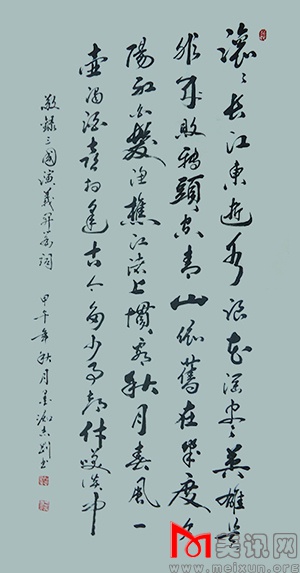 滚々长江東逝水浪花淘尽英雄是
非成敗轉頭空青山依舊在幾度夕
陽紅白髮渔樵江渚上惯看秋月春風一
壶浊酒喜相逢古今多少事都付笑谈中
敬録三國演義開篇詞 甲午年秋月
美讯网
www.meixun.org